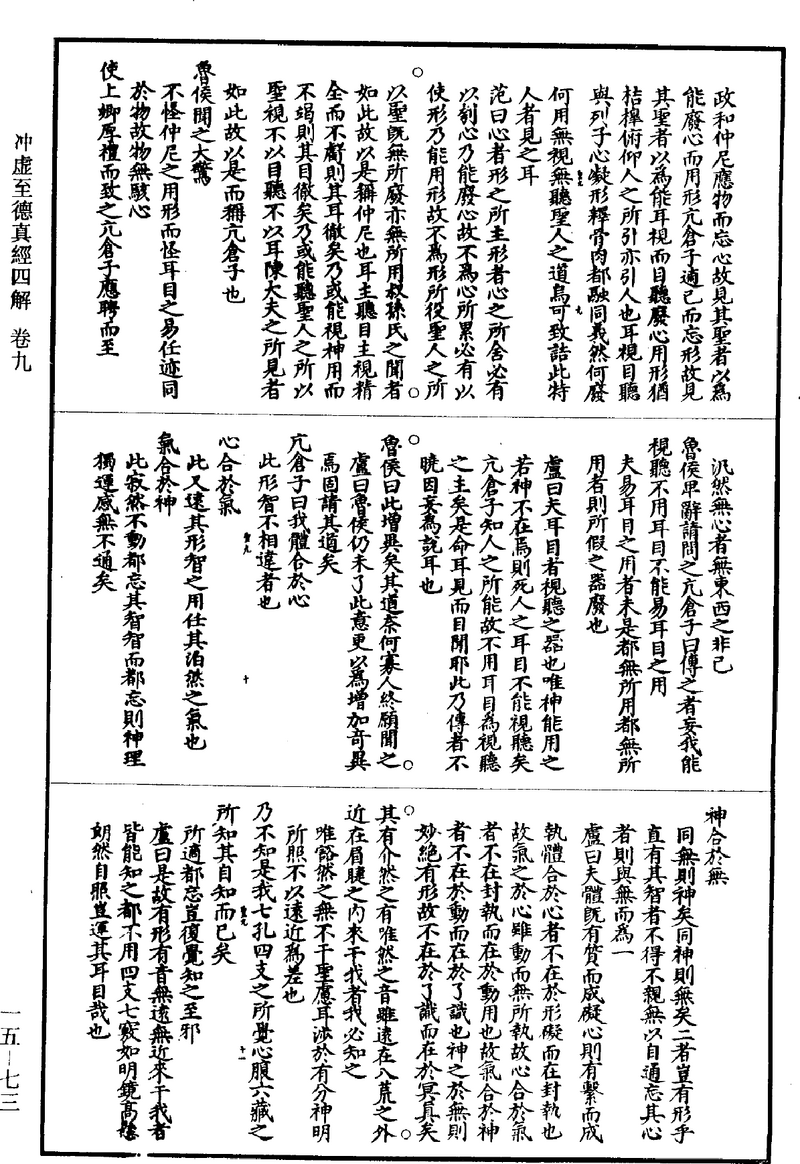 冲虛至德真經四解 卷九
政和仲尼應物而忘心故見其聖者以爲
能廢心而用形亢倉子適己而忘形故見
其聖者以爲能耳視而目聽廢心用形猶
桔槔俯仰人之所引亦引人也耳視目聽
與列子心凝形釋骨肉都融同義然何廢
何用無視無聽聖人之道烏可致詰此特
人者見之耳
范曰心者形之所主形者心之所舍必有
以刳心乃能廢心故不爲心所累必有以
使形乃能用形故不爲形所役聖人之所
以聖旣無所廢亦無所用叔孫氏之聞者
如此故以是稱仲尼也耳主聽目主視精
全而不虧則其耳徹矣乃或能視神用而
不竭則其目徹矣乃或能聽聖人之所以
聖視不以目聽不以耳陳大夫之所見者
如此故以是而稱亢倉子也
魯侯聞之大驚
不怪仲尼之用形而怪耳目之易任迹同
於物故物無駭心
使上卿厚禮而致之亢倉子應聘而至
汎然無心者無東西之非己
魯侯卑辭請問之亢倉子曰傳之者妄我能
視聽不用耳目不能易耳目之用
夫易耳目之用者未是都無所用都無所
用者則所假之器廢也
盧曰夫耳目者視聽之器也唯神能用之
若神不在焉則死人之耳目不能視聽矣
亢倉子知人之所能故不用耳目爲視聽
之主矣是命耳見而目聞耶此乃傳者不
曉因妄爲說耳也
魯侯曰此增異矣其道奈何寡人終願聞之
盧曰魯侯仍未了此意更以爲增加奇異
焉固請其道矣
亢倉子曰我體合於心
此形智不相違者也
心合於氣
此又遠其形智之用任其泊然之氣也
氣合於神
此寂然不動都忘其智智而都忘則神理
獨運感無不通矣
神合於無
同無則神矣同神則無矣二者豈有形乎
直有其智者不得不親無以自通忘其心
者則與無而爲一
盧曰夫體旣有質而成礙心則有繫而成
執體合於心者不在於形礙而在封執也
故氣之於心雖動而無所執故心合於氣
者不在封執而在於動用也故氣合於神
者不在於動而在於了識也神之於無則
妙絕有形故不在於了識而在於冥真矣
其有介然之有唯然之音雖遠在八荒之外
近在眉睫之內來干我者我必知之
唯豁然之無不干聖慮耳涉於有分神明
所照不以遠近爲差也
乃不知是我七孔四支之所覺心腹六藏之
所知其自知而已矣
所適都忘豈復覺知之至邪
盧曰是故有形有音無遠無近來干我者
皆能知之都不用四支七竅如明鏡高懸
朗然自照豈運其耳目哉也
一五—七三